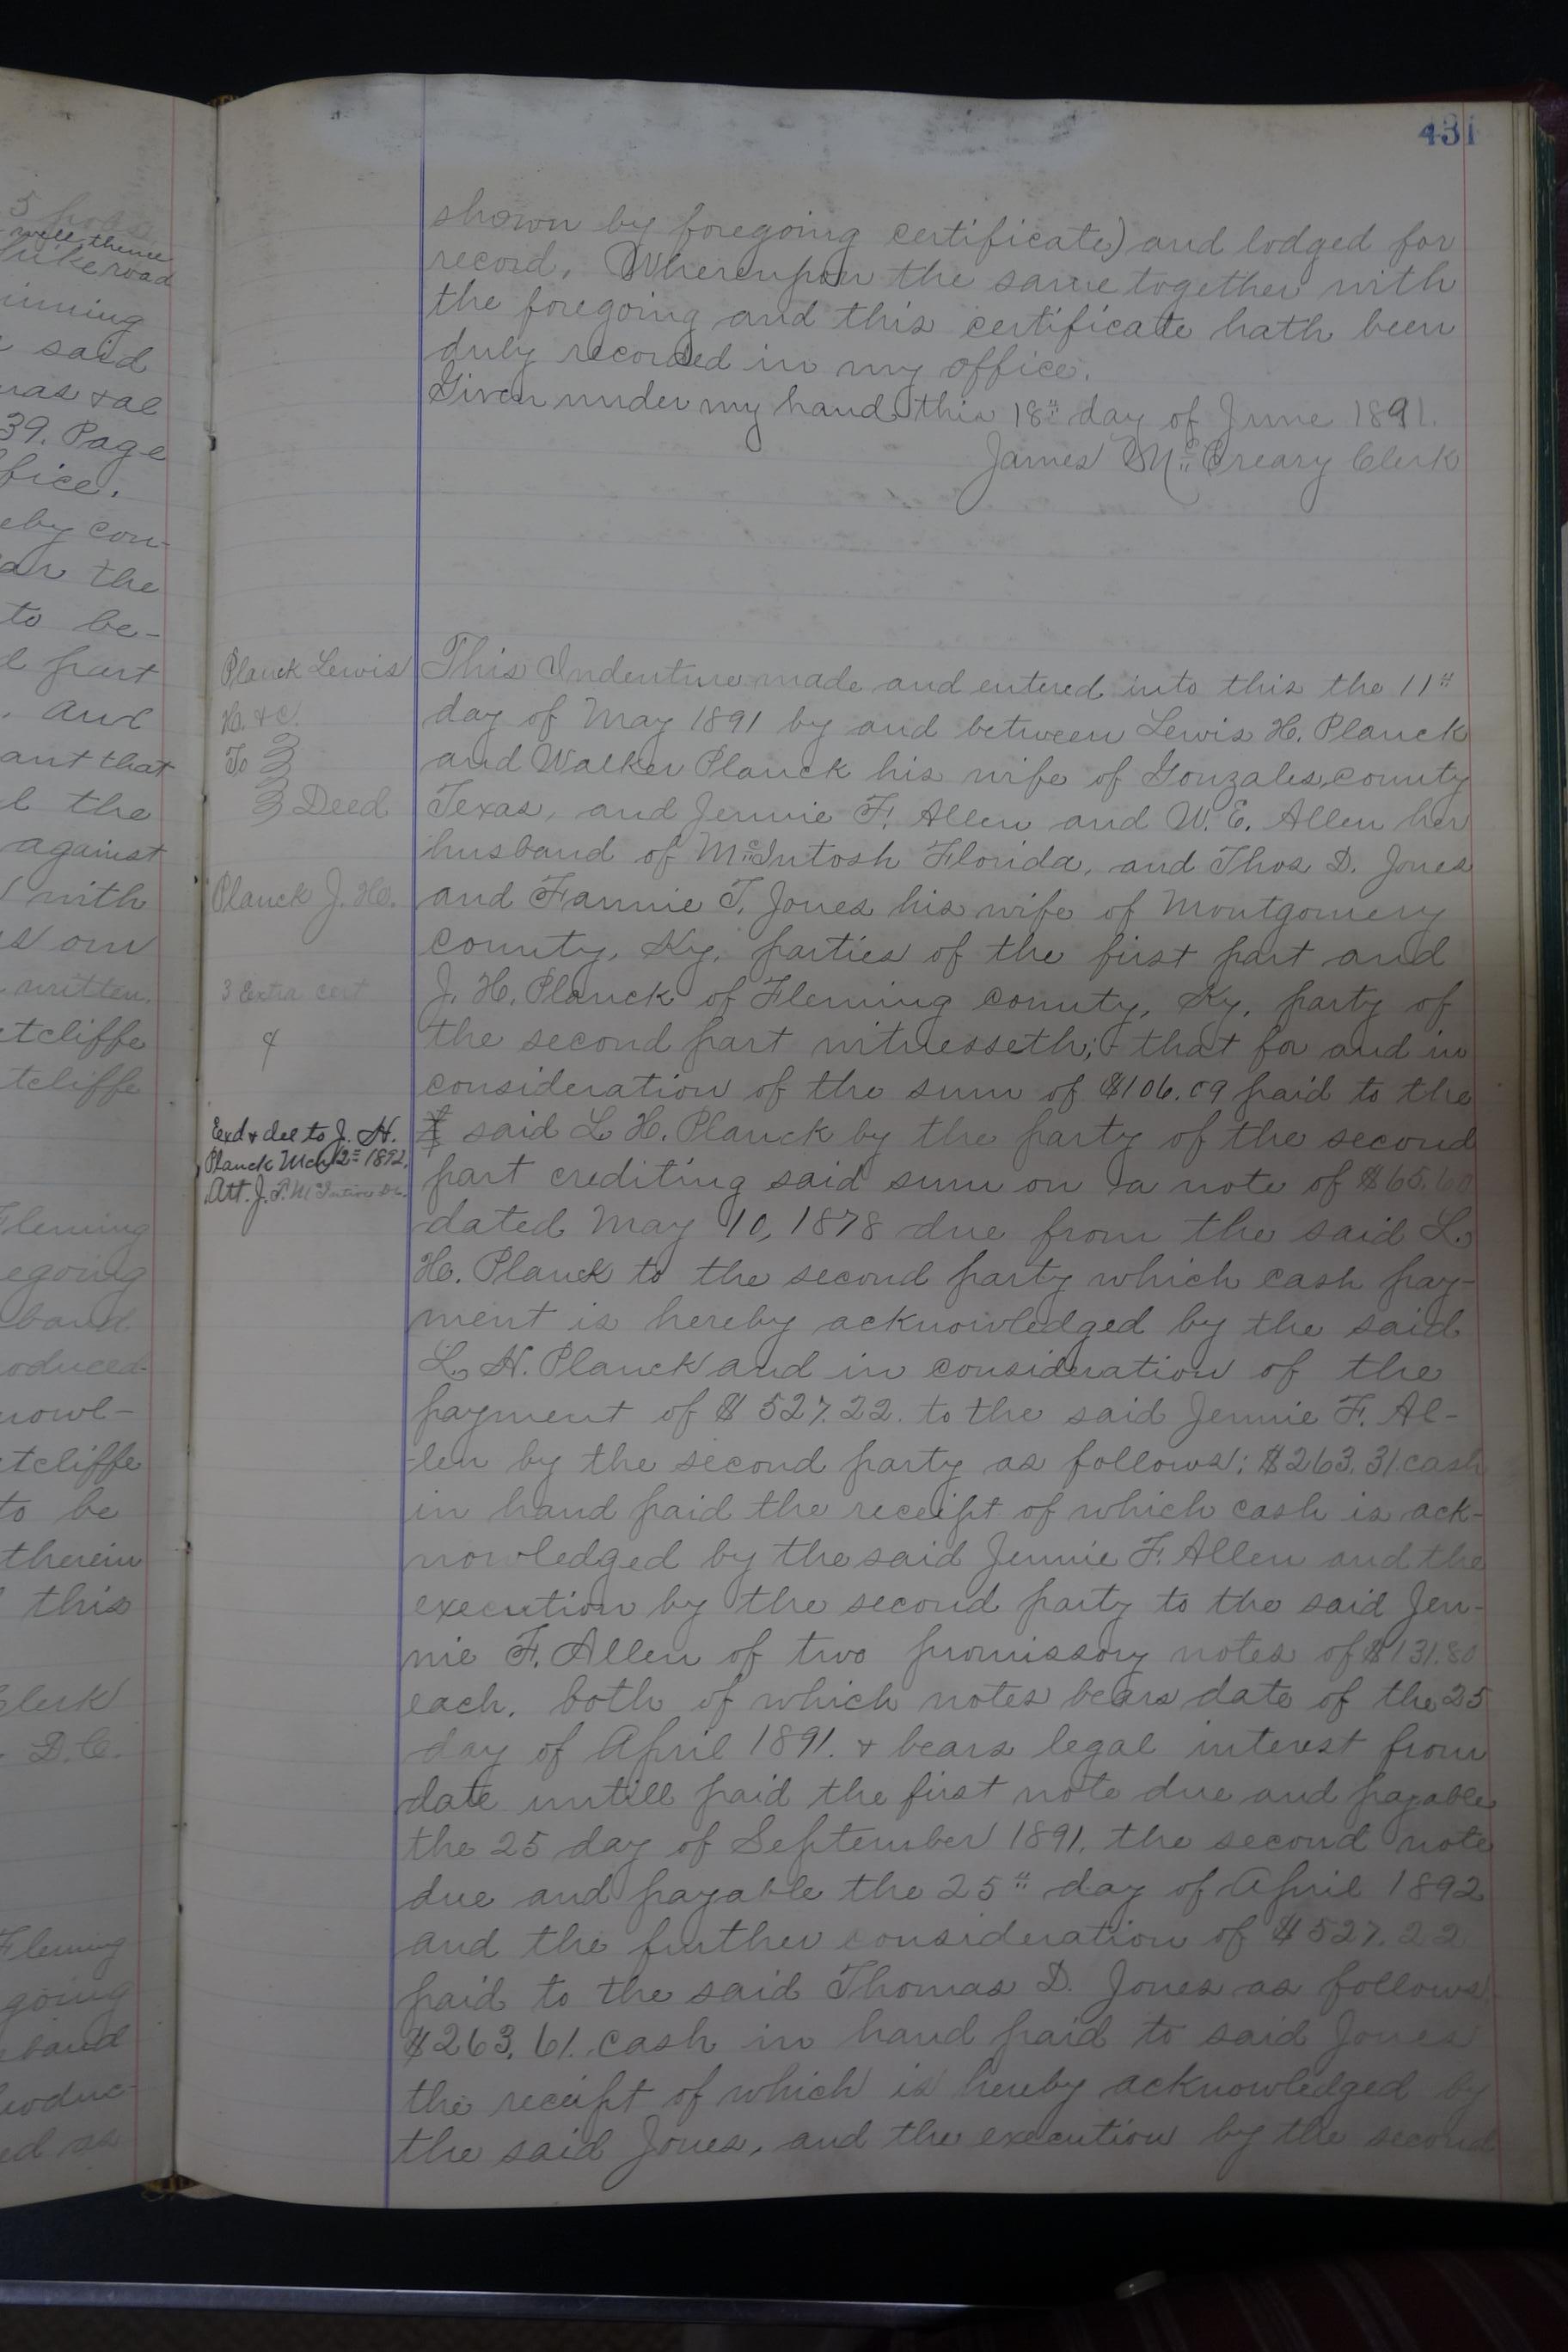 431
shown by foregoing certificate) and lodged for
record. Whereupon the same together with
the foregoing and this certificate hath been
duly recorded in my office.
Given under my hand this 18" day of June 1891.
James McCreary Clerk
Planck Lewis
H. &c.
To
Deed
Planck J. H.
3 Extra cert
Exd & del to J. H.
Planck Mch 12 1892.
Att. J. P.
This Indenture made and entered into this the 11"
day of May 1891 by and between Lewis H. Planck
and Walker Planck his wife of Gonzales county
Texas, and Jennie F. Allen and W. E. Allen her
husband of McIntosh Florida, and Thos D. Jones
and Fannie T. Jones his wife of Montgomery
county, Ky. parties of the first part and
J. H. Planck of Fleming county, Ky. party of
the second part witnesseth; that for and in
consideration of the sum of $106.09 paid to the
said L H. Planck by the party of the second
part crediting said sum on a note of $65.60
dated May 10, 1878 due from the said L.
H. Planck to the second party which cash pay-
ment is hereby acknowledged by the said
L. H. Planck and in consideration of the
payment of $527.22. to the said Jennie F. Al-
len by the second party as follows: $263.31. cash
in hand paid the receipt of which cash is ack-
nowledged by the said Jennie F. Allen and the
execution by the second party to the said Jen-
nie F. Allen of two promissory notes of $131.80
each. both of which notes bears date of the 25
day of April 1891. & bears legal interest from
date untill paid the first note due and payable
the 25 day of September 1891. the second note
due and payable the 25" day of April 1892
and the further consideration of $527.22
paid to the said Thomas D. Jones as follows
$263.61. cash in hand paid to said Jones
the receipt of which is hereby acknowledged by
the said Jones, and the execution by the second